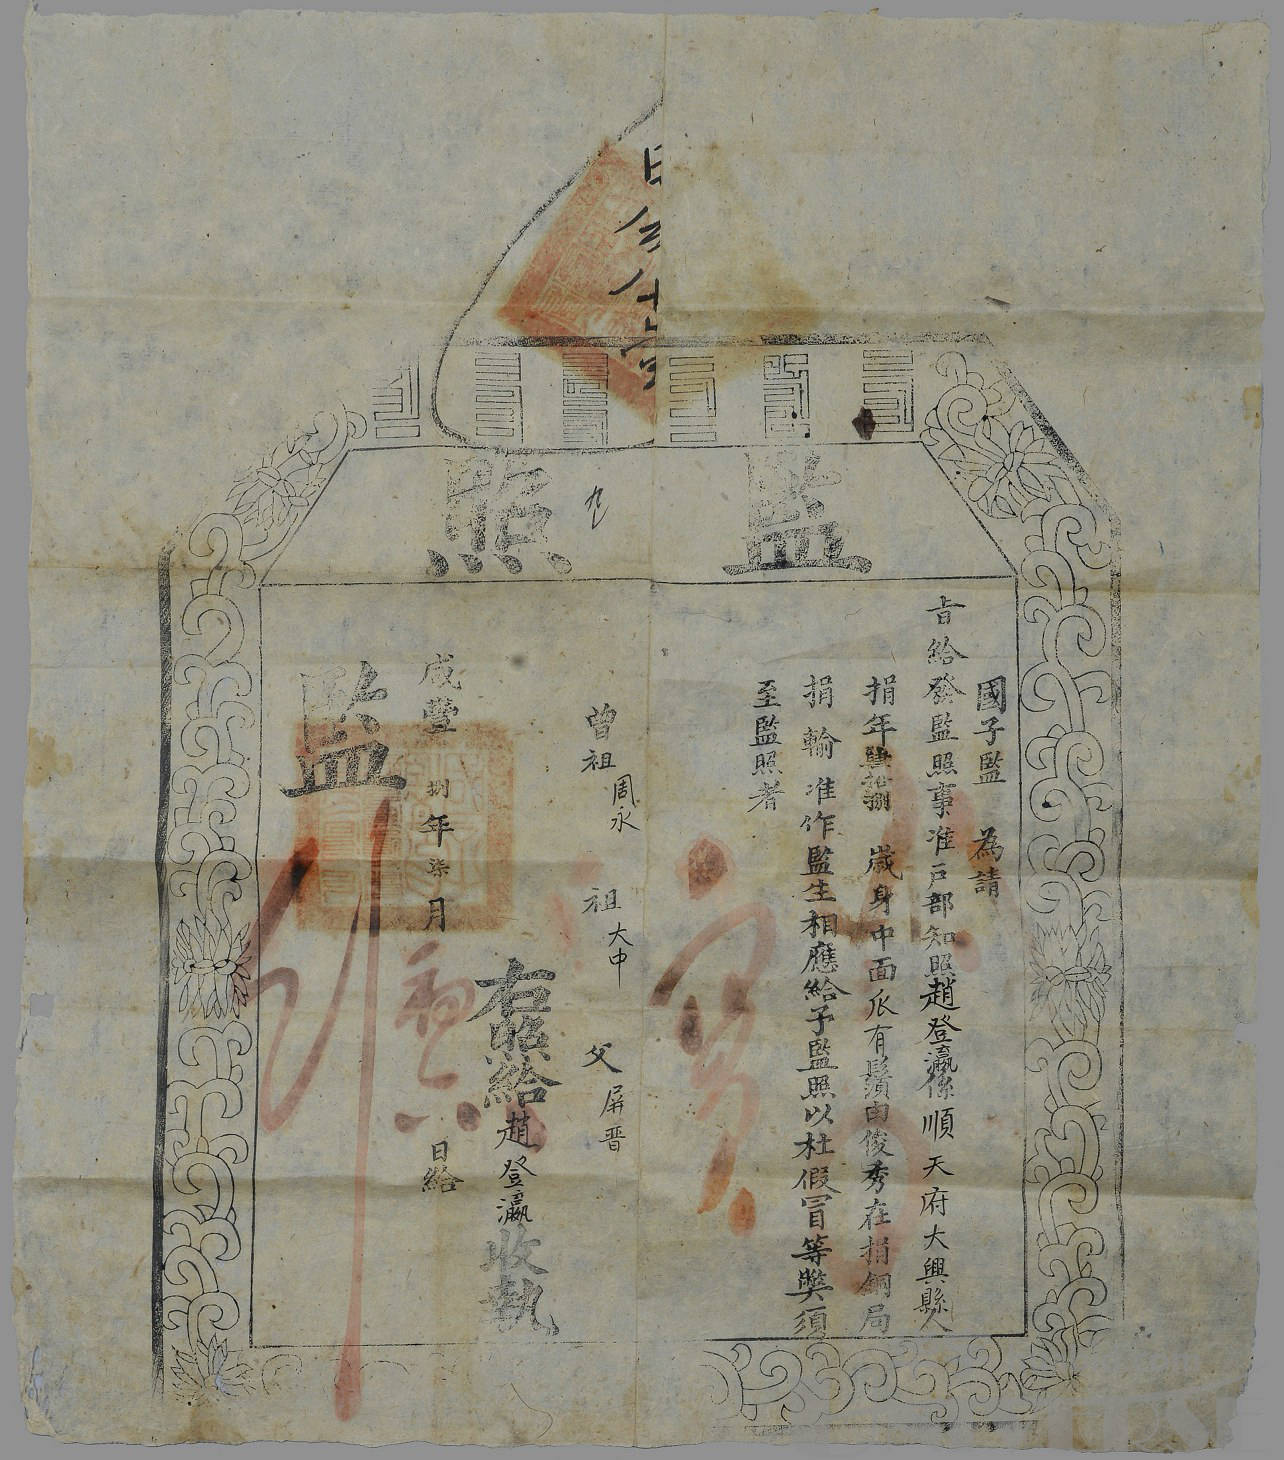 監照
國子監 為請
旨給發監照事准戶部知照趙登瀛係順天府大興縣人
捐年肆拾捌歲身中面爪有鬚由俊秀在捐銅局
捐輸准作監生相應給予監照以杜假冒等獘須
至監照者
曾祖周永 祖大中 父屏晋
右照給趙登瀛收執
咸豐捌年柒月 日給
監